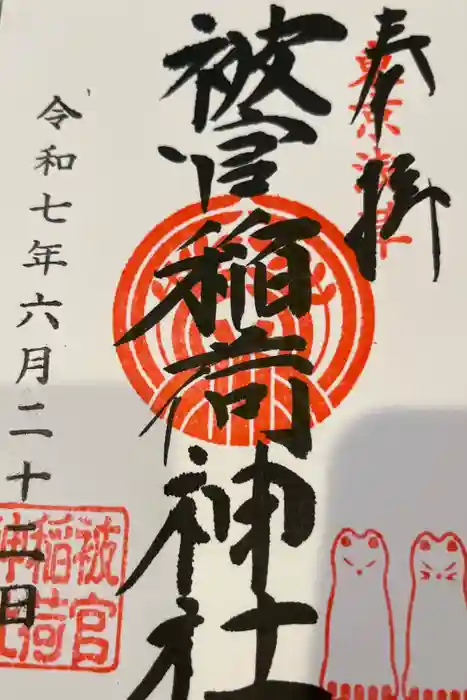 奉拝
東京浅草
被官稲荷神社
令和七年六月二十二日
被官
稲荷
神社